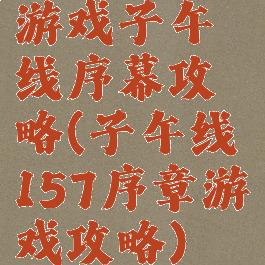 游戏子午
线序幕攻
略(子午线
157序章游
戏攻略)